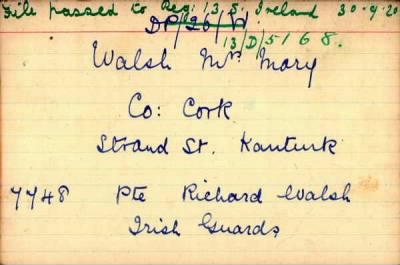 File passed to Reg: 13. S. Ireland 30.9.20
DP/26/W
13/D/5168.
Walsh Mrs Mary
Co: Cork
Strand St. Kanturk
7748 Pte Richard Walsh
Irish Guards